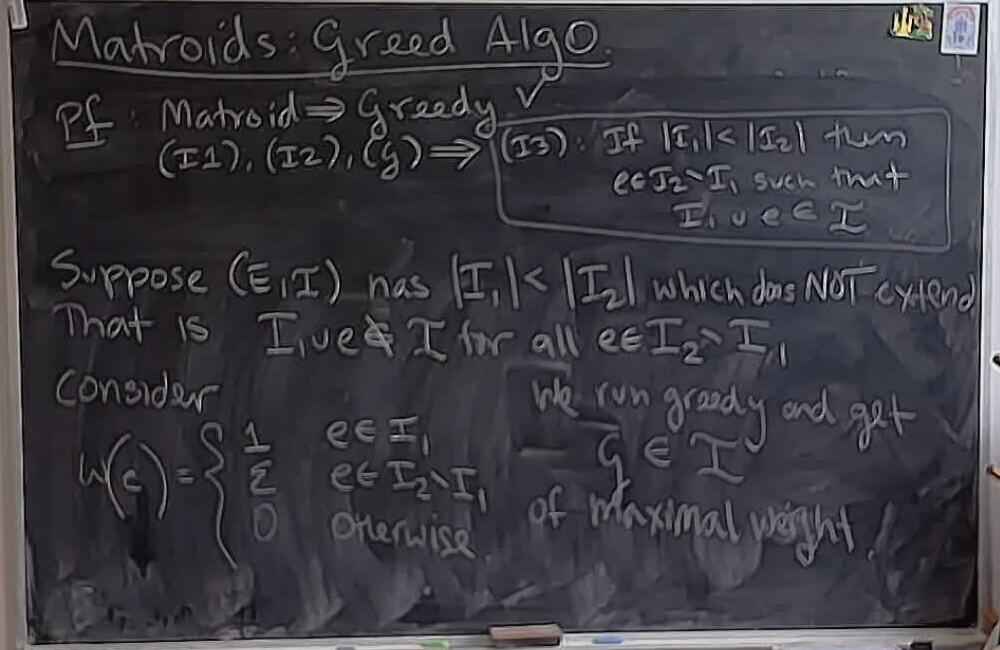 Matroids: Greed Algo.
Pf: Matroid ⇒ Greedy ✓
(I1), (I2), (G) ⇒ (I3): If |I₁| < |I₂| then
e∈I₂∖I₁ such that
I₁ ∪ e ∈ I
Suppose (E,I) has |I₁| < |I₂| which does NOT extend
That is I₁∪e∉ I for all e∈I₂∖I₁
Consider
w(e) = { 1 e∈I₁
Σ e∈I₂∖I₁
0 otherwise.
We run greedy and get
G ∈ I
of maximal weight!